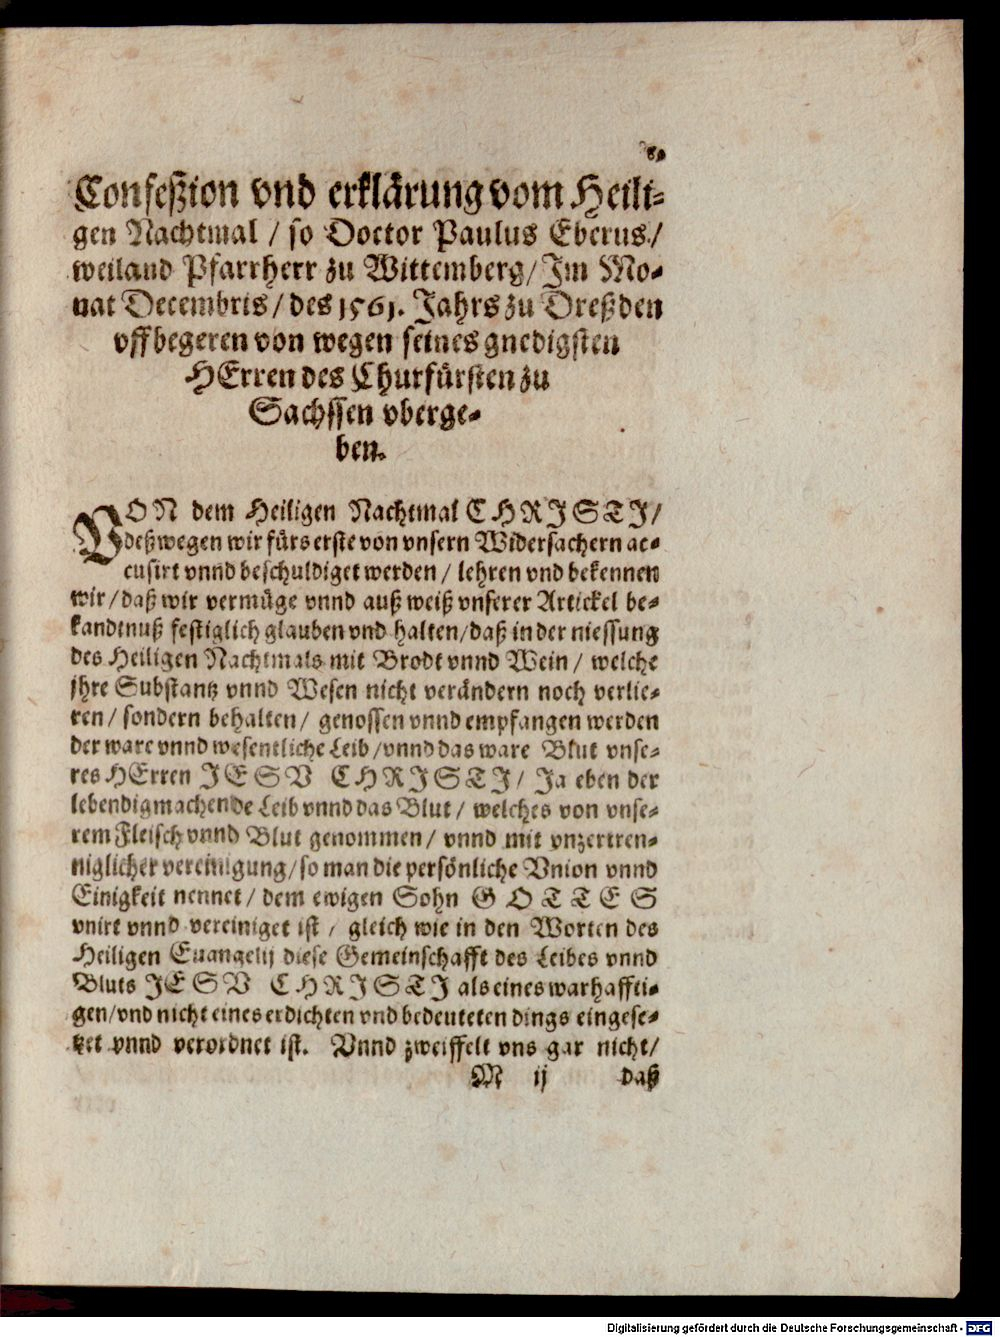 Confeßion vnd erklärung vom Heili⸗
gen Nachtmal / so Doctor Paulus Eberus /
weiland Pfarrherr zu Wittemberg / Im Mo⸗
nat Decembris / des 1561. Jahrs zu Dreßden
vff begeren von wegen seines gnedigsten
HErren des Churfürsten zu
Sachssen vberge⸗
ben.
VON dem Heiligen Nachtmal CHRISTI /
deßwegen wir fürs erste von vnsern Widersachern ac⸗
cusirt vnnd beschuldiget werden / lehren vnd bekennen
wir / daß wir vermüge vnnd auß weiß vnserer Artickel be⸗
kandtnuß festiglich glauben vnd halten / daß in der niessung
des Heiligen Nachtmals mit Brodt vnnd Wein / welche
jhre Substantz vnnd Wesen nicht verändern noch verlie⸗
ren / sondern behalten / genossen vnnd empfangen werden
der ware vnnd wesentliche Leib / vnnd das ware Blut vnse⸗
res HErren JESV CHRISTI / Ja eben der
lebendigmachende Leib vnnd das Blut / welches von vnse⸗
rem Fleisch vnnd Blut genommen / vnnd mit vnzertren⸗
niglicher vereinigung / so man die persönliche Vnion vnnd
Einigkeit nennet / dem ewigen Sohn GOTTES
vnirt vnnd vereiniget ist / gleich wie in den Worten des
Heiligen Euangelij diese Gemeinschafft des Leibes vnnd
Bluts JESV CHRISTI als eines warhaffti⸗
gen / vnd nicht eines erdichten vnd bedeuteten dings eingese⸗
tzet vnnd verordnet ist. Vnnd zweiffelt vns gar nicht /
M ij daß
Digitalisierung gefördert durch die Deutsche Forschungsgemeinschaft - DFG